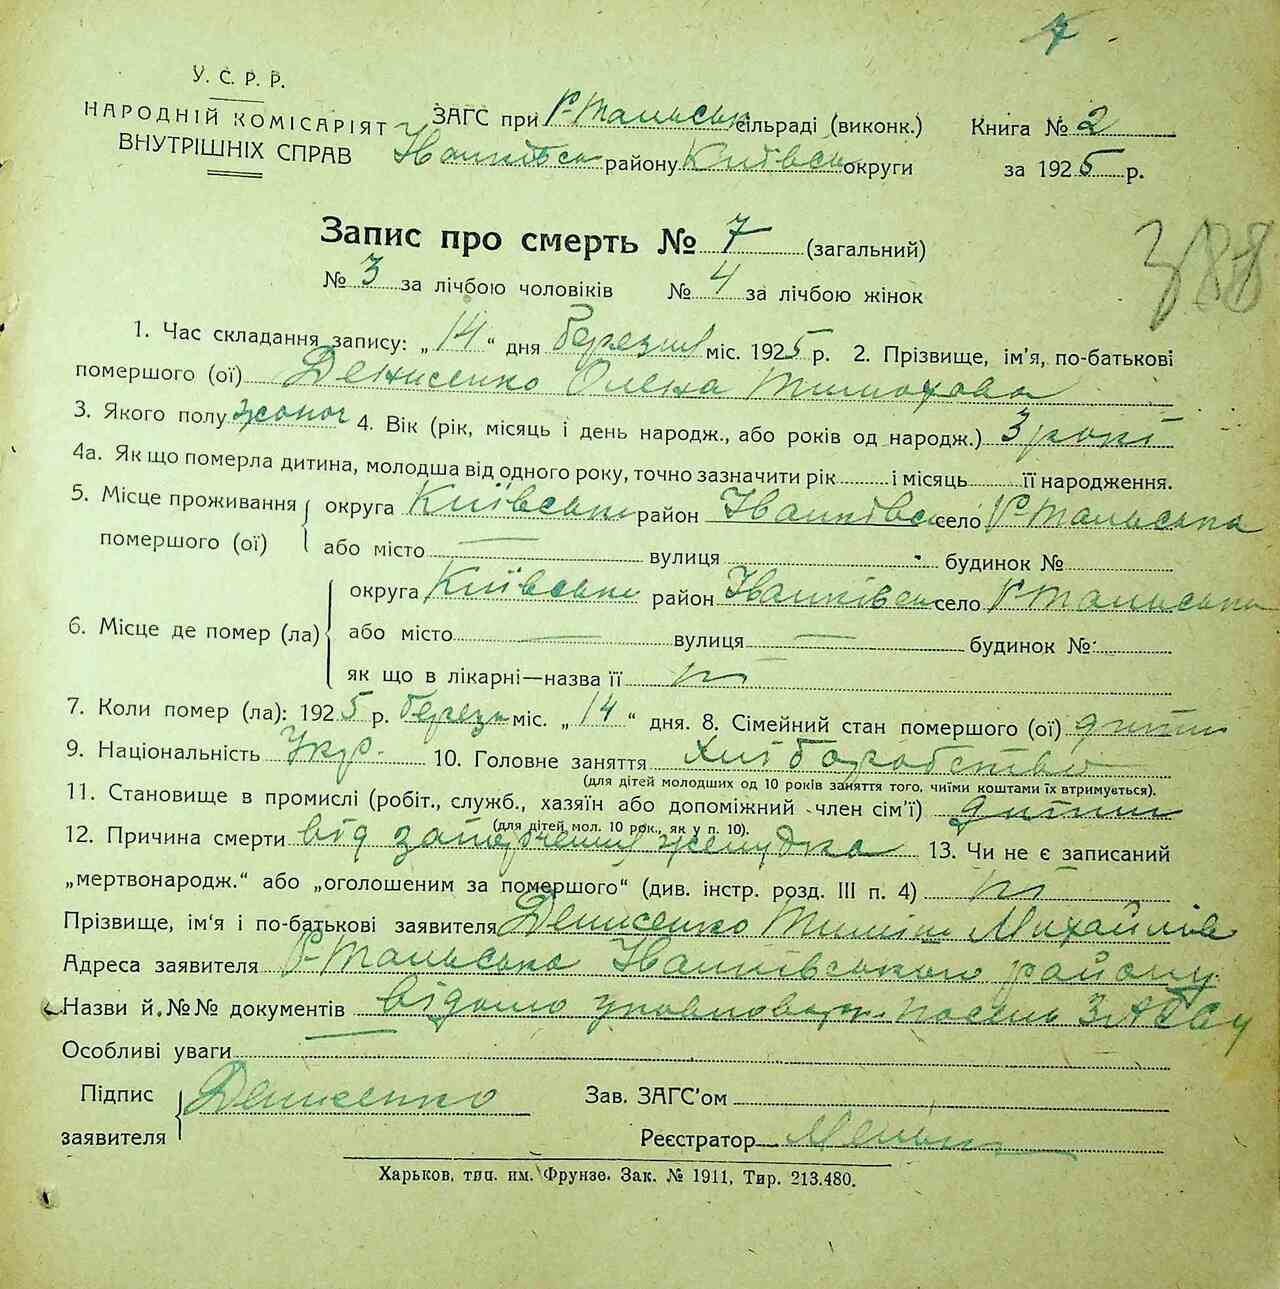 7
У. С. Р. Р.
НАРОДНІЙ КОМІСАРІЯТ
ВНУТРІШНІХ СПРАВ
ЗАГС при Р-Тальськ сільраді (виконк.)
Іванківськ району Київськ округи
Книга № 2
за 1925 р.
388
Запис про смерть № 7 (загальний)
№ 3 за лічбою чоловіків № 4 за лічбою жінок
1. Час складання запису: „14“ дня березня міс. 1925 р. 2. Прізвище, ім’я, по-батькові
помершого (ої) Денисенко Олена Тимохова
3. Якого полу жоноч 4. Вік (рік, місяць і день народж., або років од народж.) 3 рокі
4а. Як що померла дитина, молодша від одного року, точно зазначити рік і місяць її народження.
5. Місце проживання помершого (ої) округа Київськи район Іванківськ село Р-Тальська
або місто — вулиця будинок №
6. Місце де помер (ла) округа Київськи район Іванківськ село Р-Тальська
або місто — вулиця — будинок №
як що в лікарні—назва її ні
7. Коли помер (ла): 1925 р. березн міс. „14“ дня. 8. Сімейний стан помершого (ої) дитин
9. Національність Укр. 10. Головне заняття хліборобство
(для дітей молодших од 10 років заняття того, чиїми коштами їх втримується).
11. Становище в промислі (робіт., служб., хазяїн або допоміжний член сім’ї) дитин
(для дітей мол. 10 рок., як у п. 10).
12. Причина смерти від желудка 13. Чи не є записаний
„мертвонародж.“ або „оголошеним за помершого“ (див. інстр. розд. III п. 4) ні
Прізвище, ім’я і по-батькові заявителя Денисенко Тиміш Михайлів
Адреса заявителя Р-Тальська Іванківського району
Назви й №№ документів відомо ЗАГСу
Особливі уваги
Підпис заявителя Денисенко Зав. ЗАГС’ом
Реєстратор
Харьков, тип. им. Фрунзе. Зак. № 1911, Тир. 213.480.